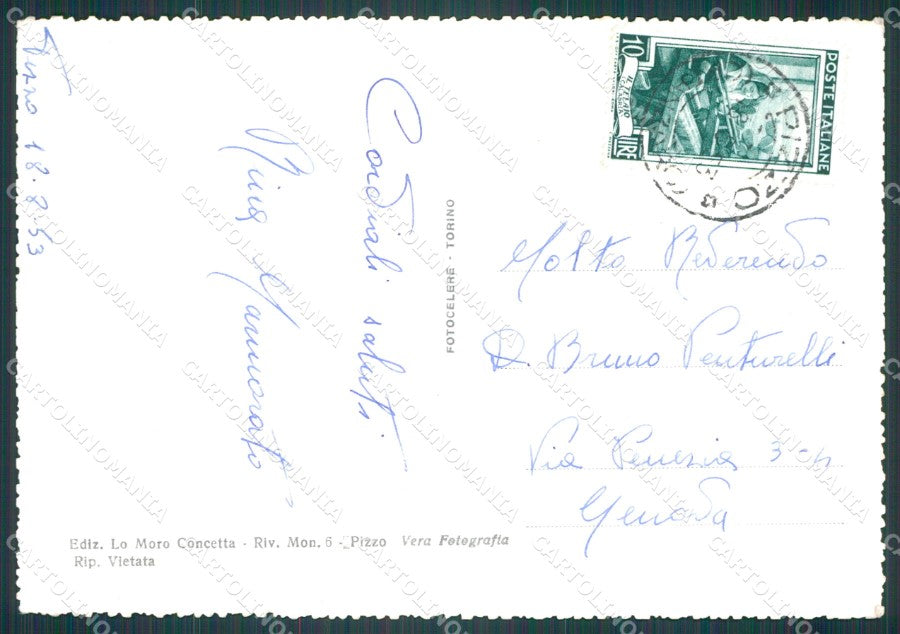 Pizzo 18.8.53
Cordiali saluti
Nina Mannorato
FOTOCELERE - TORINO
10 LIRE
POSTE ITALIANE
PIZZO
Molto Reverendo
D. Bruno Venturelli
Via Venezia
Genova
Ediz. Lo Moro Concetta - Riv. Mon. 6 - Pizzo Vera Fotografia
Rip. Vietata
CARTOLINOMANIA